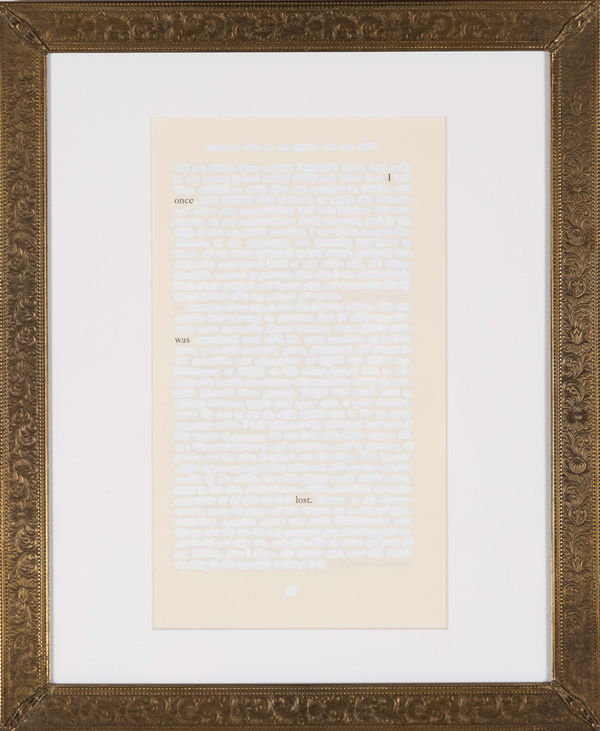 I
once
was
lost.